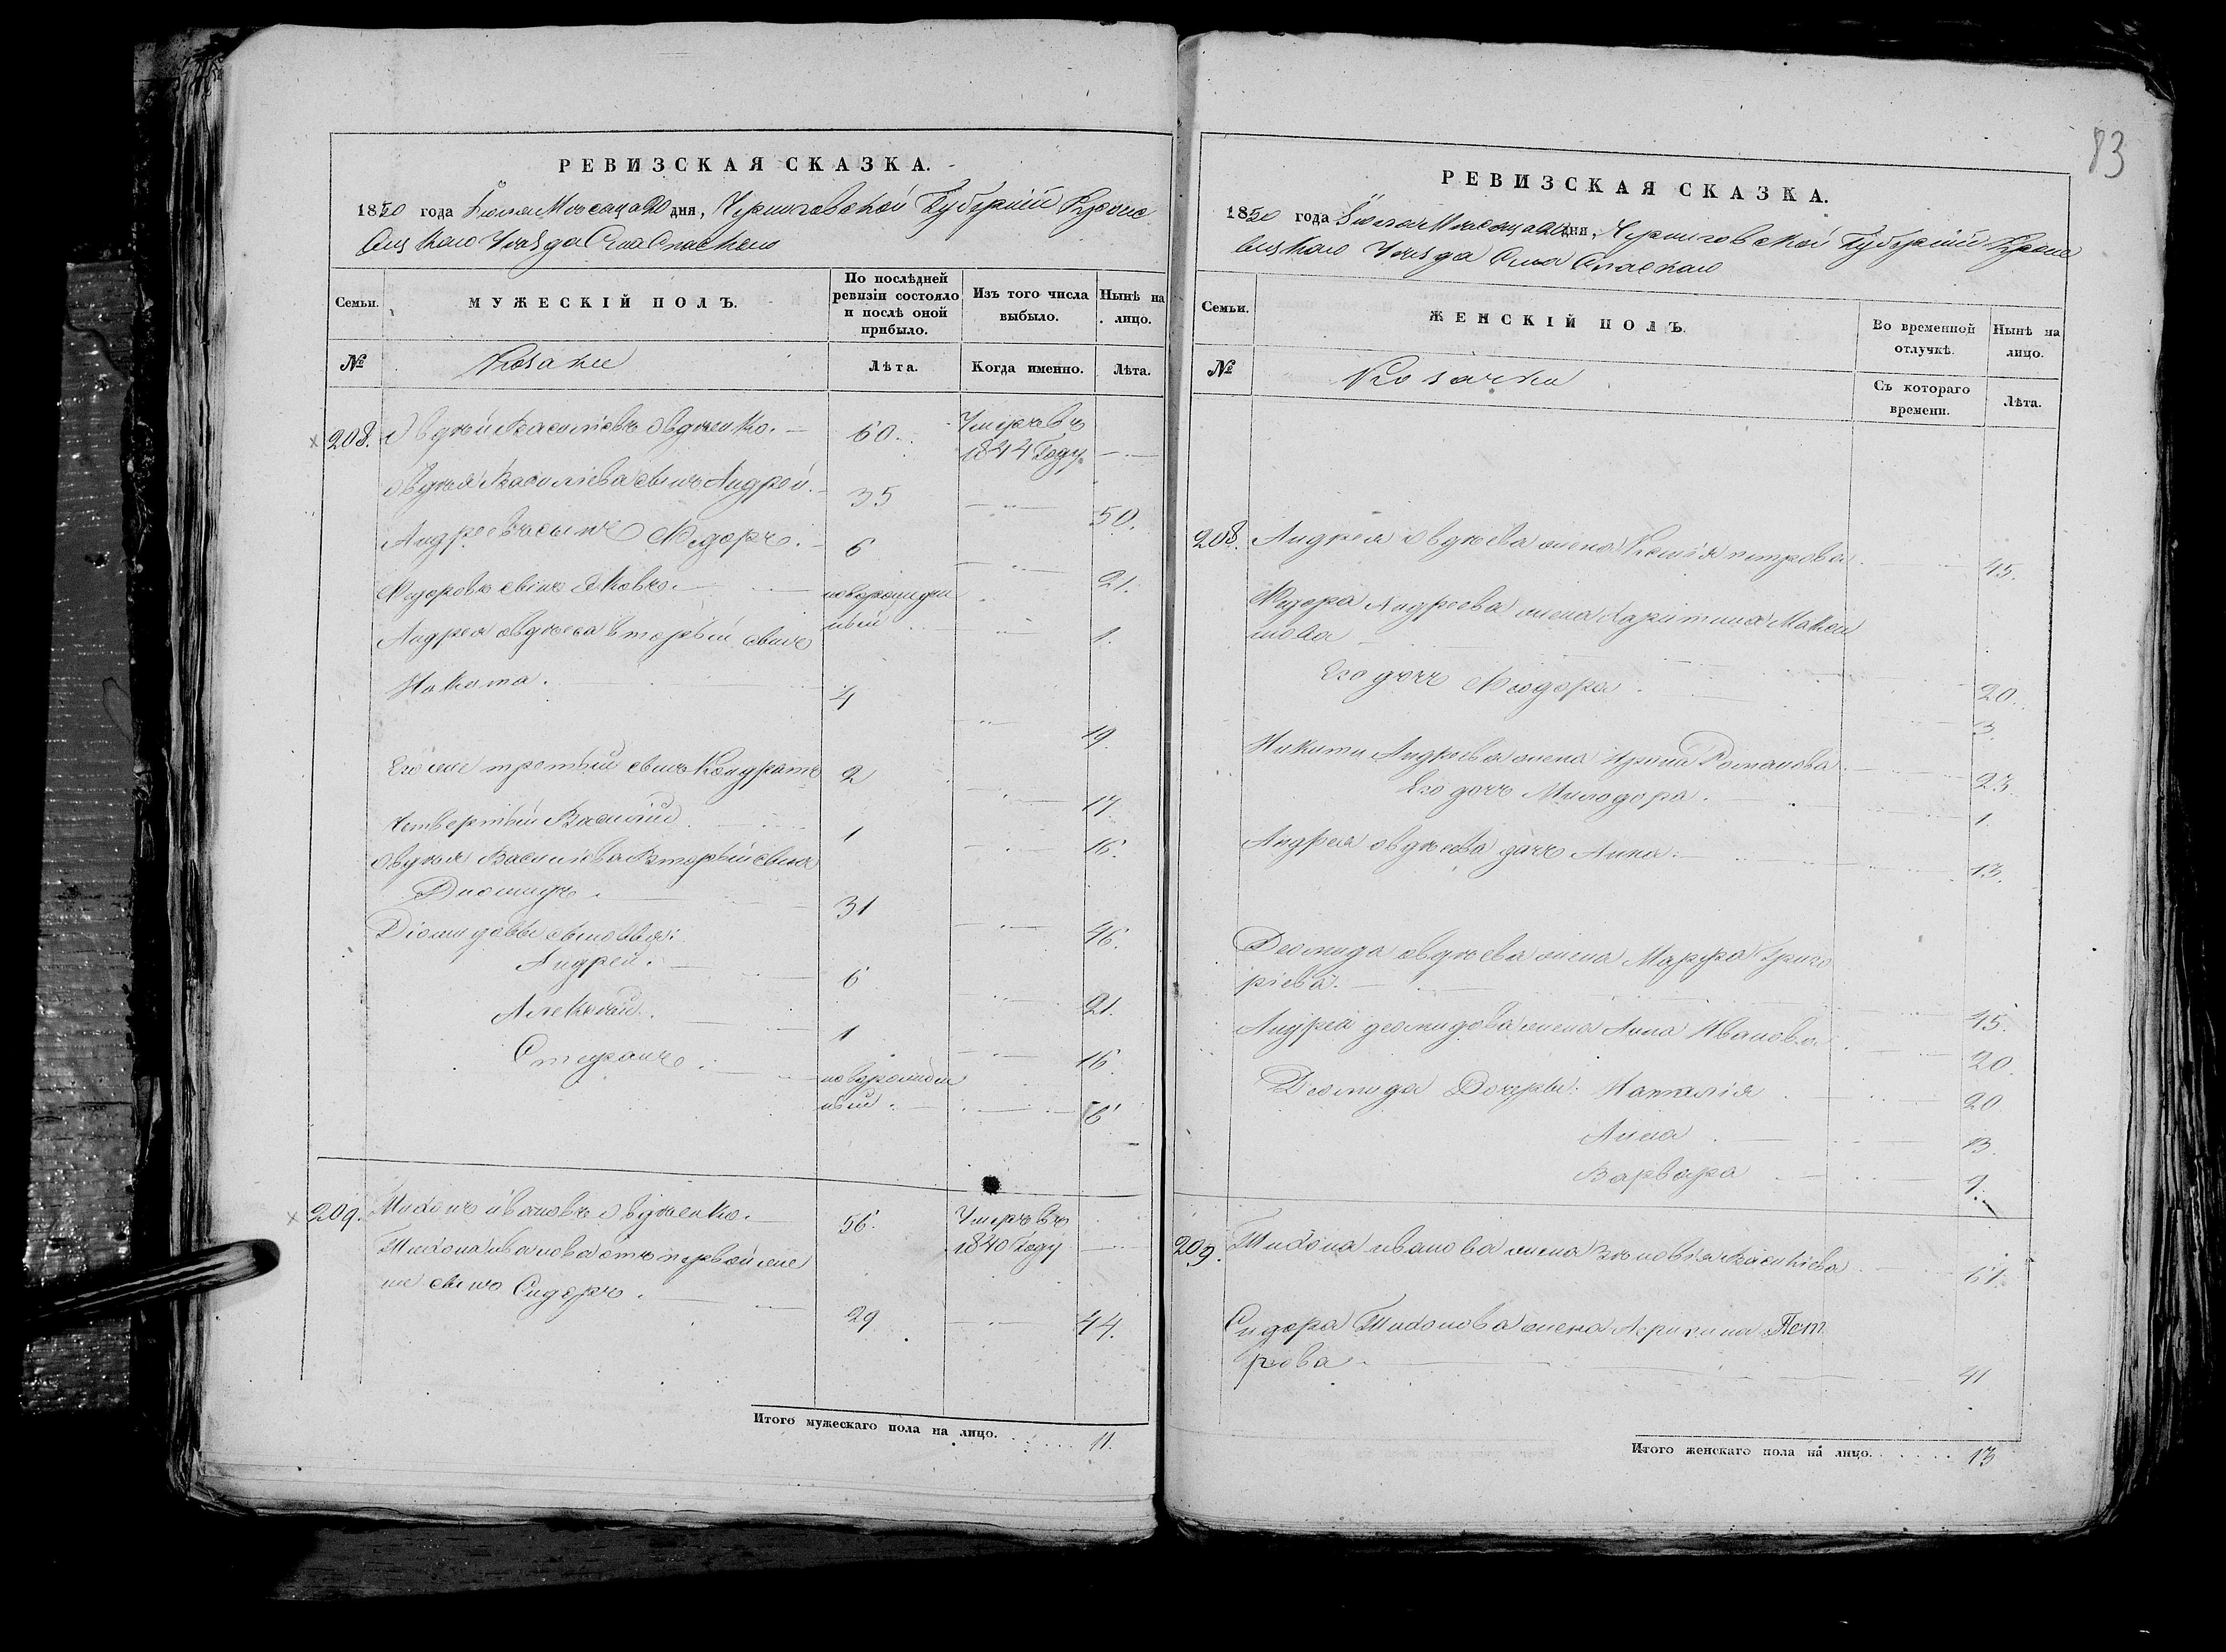 РЕВИЗСКАЯ СКАЗКА.
1850 года Июля Месяца 20 дня, Черниговской Губерніи Кроле
вецкаго Уезда Села Спаскаго
Семьи.
МУЖЕСКІЙ ПОЛЪ.
По послѣдней ревизіи состояло и послѣ оной прибыло.
Изъ того числа выбыло.
Нынѣ на лицо.
№
Козаки
Лѣта.
Когда именно.
Лѣта.
208. Овдѣй Василіевъ Овдѣенко. 60. Умеръ въ
1844 Году
Овдѣя Василіева сынъ Андрей. 35 50.
Андреевъ сынъ Федоръ. 6 21.
Федоровъ сынъ Яковъ. новорожден
ный 1.
Андрея Овдѣева вторый сынъ
Никита. 4 19.
Его же третый сынъ Кондратъ 2 17
Четвертый Василій 1 16.
Овдѣя Василіева Вторый сынъ
Диомидъ. 31 46.
Діомидовы сыновья:
Андрей. 6 21.
Алексѣй. 1 16.
Стефанъ. новорожден
ный. 6
209. Тихонъ Ивановъ Овдѣенко. 56. Умеръ въ
1840 Году
Тихона Иванова отъ первой же
ны сынъ Сидоръ. 29 44.
Итого мужескаго пола на лицо. 11.
83
РЕВИЗСКАЯ СКАЗКА.
1850 года Июля Месяца 20 дня, Черниговской Губерніи Кроле
вецкаго Уезда Села Спаскаго
Семьи.
ЖЕНСКІЙ ПОЛЪ.
Во временной отлучкѣ.
Нынѣ на лицо.
№
Козачки
Съ котораго времени.
Лѣта.
208. Андрея Овдѣева жена Ксенія Петрова 45.
Федора Андреева жена Харитина Макси
мова 20.
Его дочь Феодора. 3.
Никиты Андреева жена Ирина Романова. 23
Его дочь Милодора. 1.
Андрея Овдѣева дочь Анна. 13.
Деомида Овдѣева жена Марфа Григо
ріева. 45.
Андрея Деомидова жена Анна Иванова 20.
Деомида Дочеры: Наталія 20
Анна 13.
Варвара 1.
209. Тихона Иванова жена Зѣновія Василіева 61.
Сидора Тихонова жена Пет
рова 41
Итого женскаго пола на лицо. 13